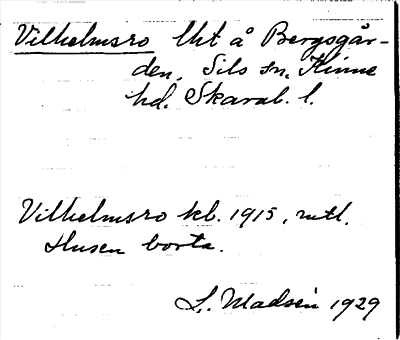 Vilhelmsro lht å Bergsgår-
den, Sils sn, Kinne
hd. Skarab. l.
Vilhelmsro kb. 1915, mtl.
Husen borta.
L. Madsén 1929